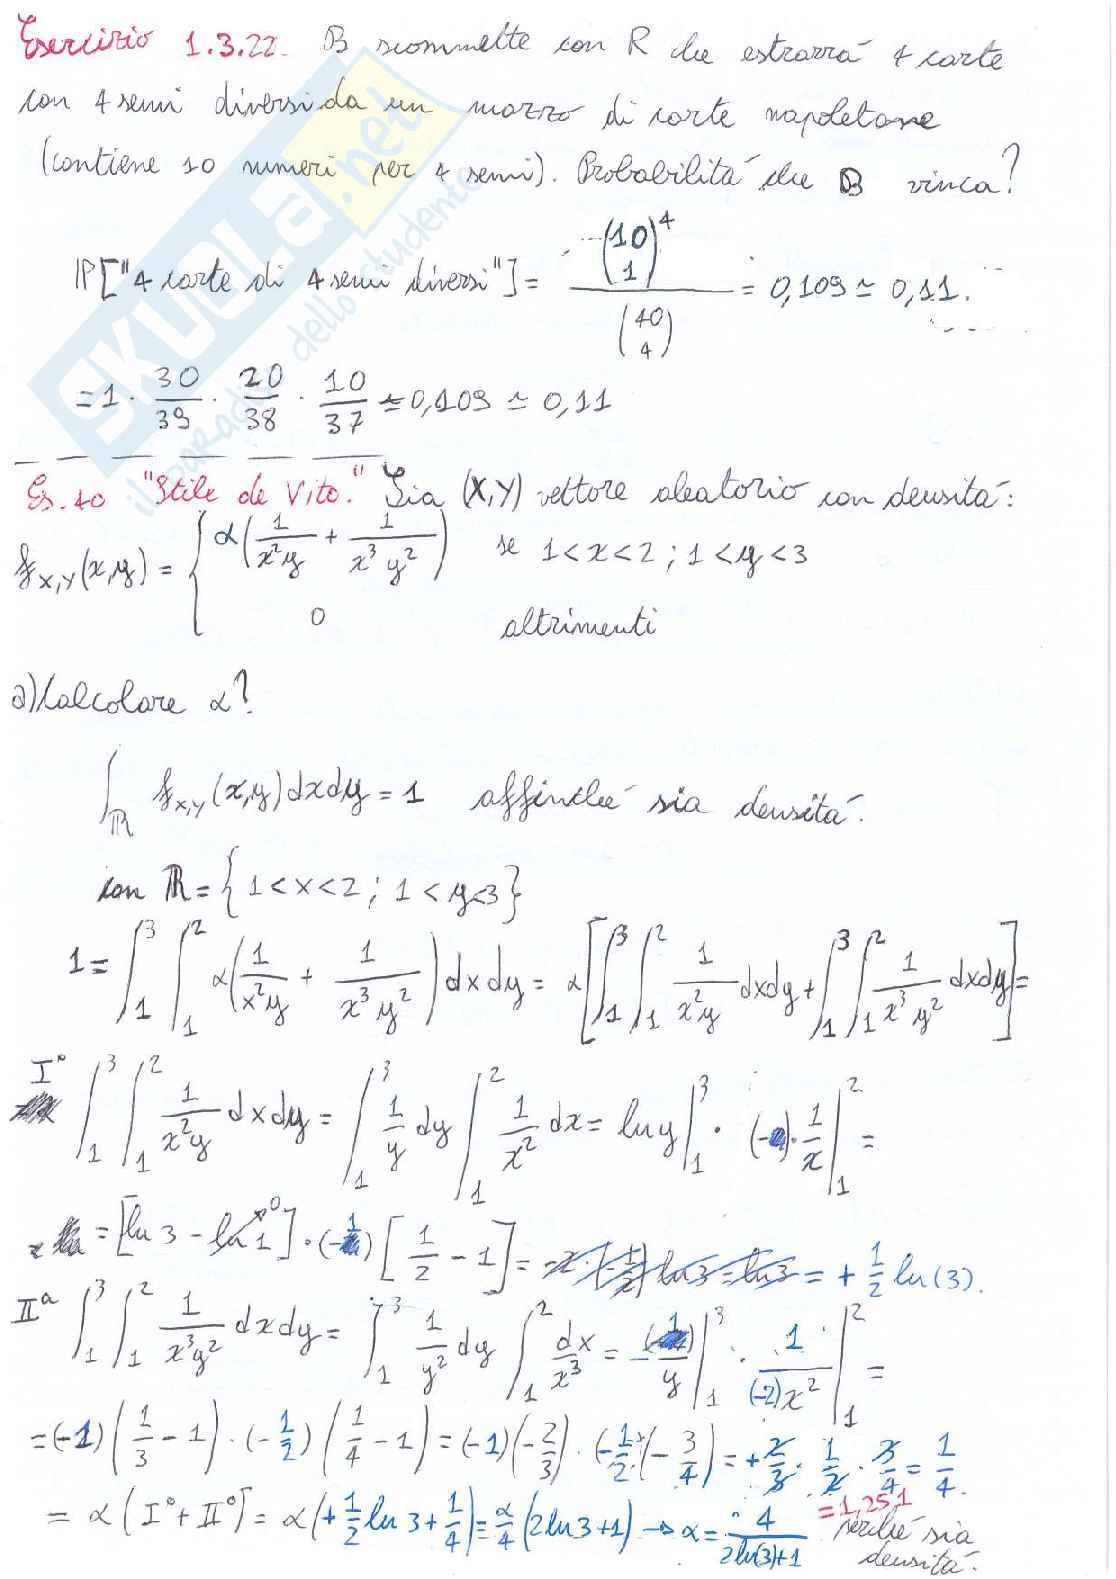 Esercizio 1.3.22. B scommette con R che estrarrá 4 carte
con 4 semi diversi da un mazzo di carte napoletane
(contiene 10 numeri per 4 semi). Probabilitá che B vinca?
P["4 carte di 4 semi diversi"] = (10 1)^4 / (40 4) = 0,109 ≃ 0,11.
= 1 · 30/39 · 20/38 · 10/37 ≃ 0,109 ≃ 0,11
Es. 40 "Stile de Vito." Sia (X,Y) vettore aleatorio con densitá:
f_{X,Y}(x,y) = { α(1/(x²y) + 1/(x³y²)) se 1<x<2 ; 1<y<3
0 altrimenti
a) Calcolare α?
∫_R f_{X,Y}(x,y) dxdy = 1 affinché sia densitá.
con R = {1<x<2 ; 1<y<3}
1 = ∫_1^3 ∫_1^2 α(1/(x²y) + 1/(x³y²)) dxdy = α[∫_1^3 ∫_1^2 1/(x²y) dxdy + ∫_1^3 ∫_1^2 1/(x³y²) dxdy] =
I° ∫_1^3 ∫_1^2 1/(x²y) dxdy = ∫_1^3 1/y dy ∫_1^2 1/x² dx = ln y |_1^3 · (-) · 1/x |_1^2 =
= [ln 3 - ln 1 → 0] · (-1) [1/2 - 1] = = + 1/2 ln(3).
IIª ∫_1^3 ∫_1^2 1/(x³y²) dxdy = ∫_1^3 1/y² dy ∫_1^2 dx/x³ = - 1/y |_1^3 · 1/((-2)x²) |_1^2 =
= (-1)(1/3 - 1) · (-1/2)(1/4 - 1) = (-1)(-2/3) · (-1/2)(-3/4) = + 2/3 · 1/2 · 3/4 = 1/4.
= α(I° + II°) = α(+1/2 ln 3 + 1/4) = α/4 (2ln3+1) → α = 4/(2ln(3)+1) = 1,251 perché sia
densitá.
SKUOLA.net
il paradiso dello studente